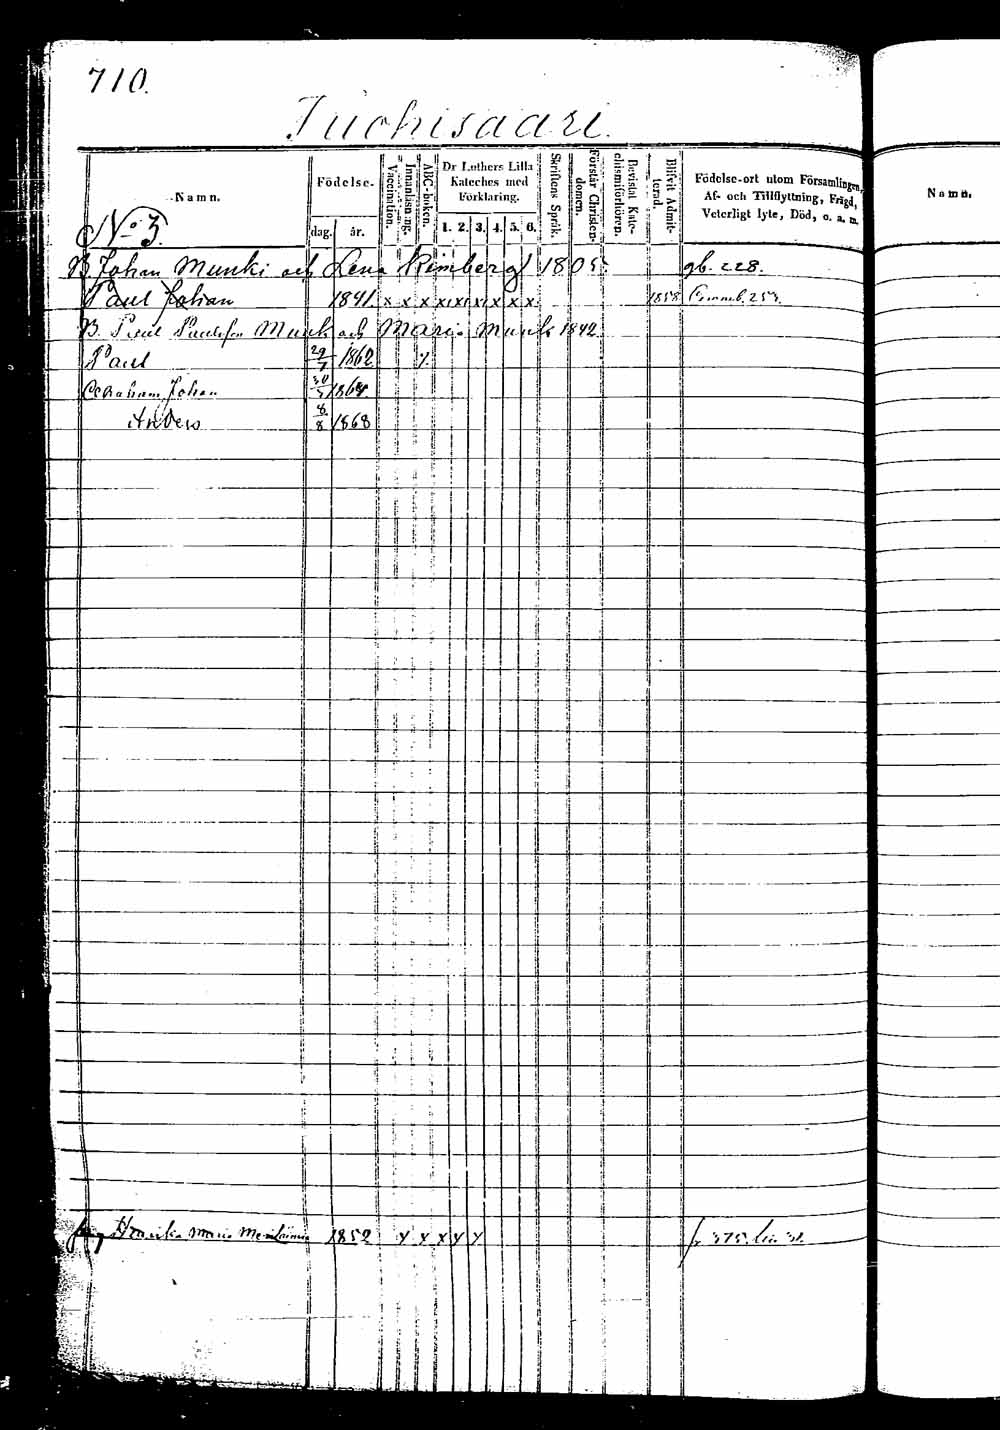 710.
Tuohisaari.
Namn.
Födelse-
dag. år.
Vaccination.
Innanläsning.
ABC-boken.
Dr Luthers Lilla Kateches med Förklaring.
1. 2. 3. 4. 5. 6.
Skriftens Språk.
Förstår Christendomen.
Bevistat Katechismiförhören.
Blifvit Admitterad.
Födelse-ort utom Församlingen, Af- och Tillflyttning, Frägd, Veterligt lyte, Död, o. a. m.
Namn.
No 3.
B Johan Munki och Lena Rimberg 1805 gb. 228.
Paul Johan 1841 x x x x x x x x x 1858 253.
B. Paul Munk och Maria Munk 1842
Paul 29/7 1862
Abraham Johan 1864
Anders 8/8 1868
Maria 1852 x x x x x fr 375